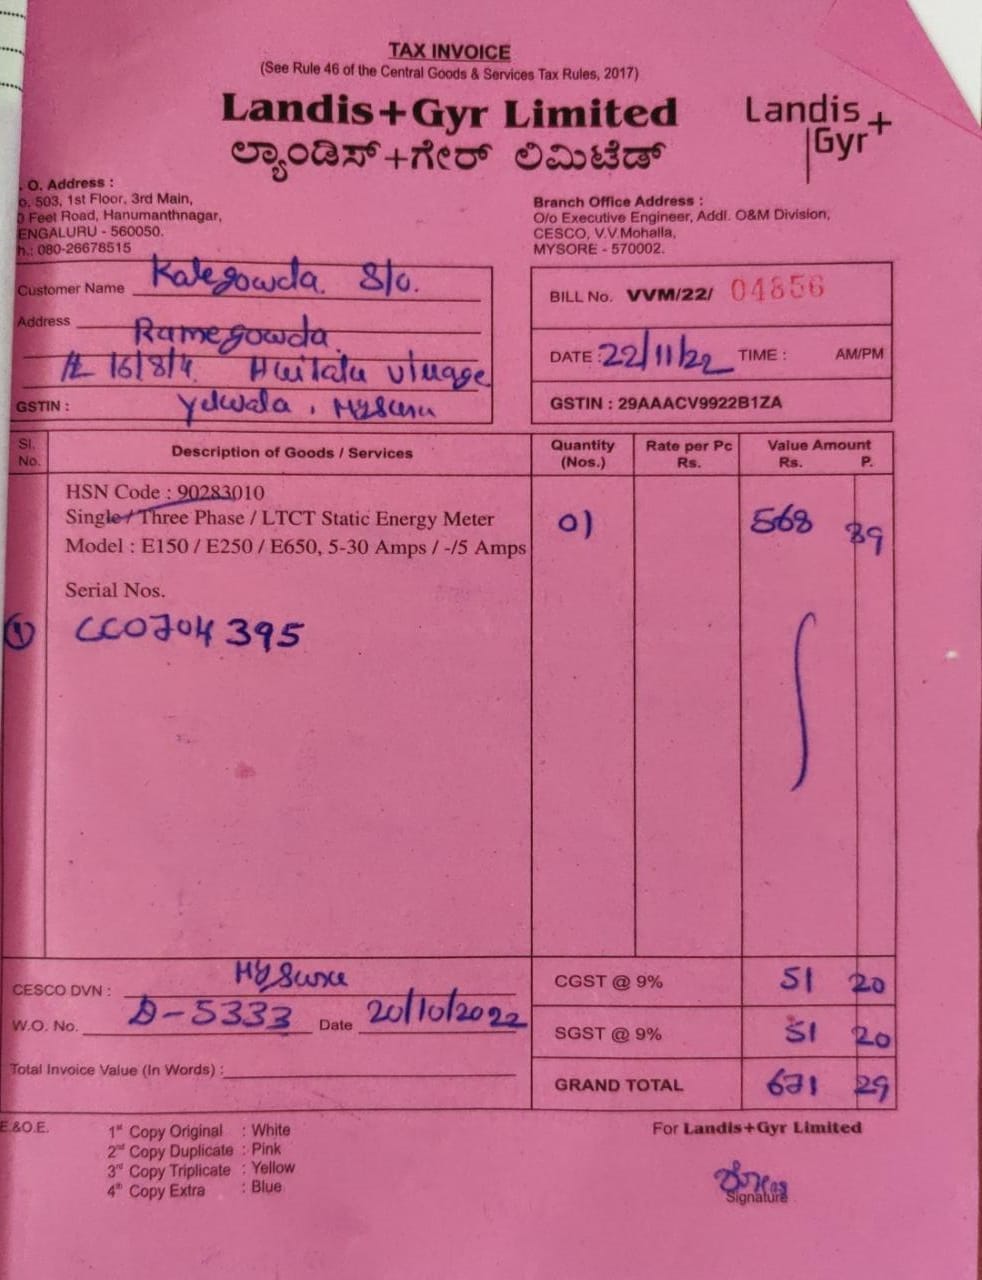 TAX INVOICE
(See Rule 46 of the Central Goods & Services Tax Rules, 2017)
Landis+Gyr Limited
ಲ್ಯಾಂಡಿಸ್+ಗೇರ್ ಲಿಮಿಟೆಡ್
Landis
Gyr+
. O. Address :
o. 503, 1st Floor, 3rd Main,
0 Feet Road, Hanumanthnagar,
ENGALURU - 560050.
h.: 080-26678515
Branch Office Address :
O/o Executive Engineer, Addl. O&M Division,
CESCO, V.V.Mohalla,
MYSORE - 570002.
Customer Name Kalegowda S/o.
Address Ramegowda
16/8/4 Huilalu village
GSTIN : Yelwala, Mysuru
BILL No. VVM/22/ 04856
DATE : 22/11/22 TIME : AM/PM
GSTIN : 29AAACV9922B1ZA
Sl. No. Description of Goods / Services Quantity (Nos.) Rate per Pc Rs. Value Amount Rs. P.
HSN Code : 90283010
Single / Three Phase / LTCT Static Energy Meter 01 568 89
Model : E150 / E250 / E650, 5-30 Amps / -/5 Amps
Serial Nos.
1 CC0704395
CESCO DVN : Mysuru
W.O. No. D-5333 Date 20/10/2022
Total Invoice Value (In Words) :
CGST @ 9% 51 20
SGST @ 9% 51 20
GRAND TOTAL 671 29
E.&O.E.
1st Copy Original : White
2nd Copy Duplicate : Pink
3rd Copy Triplicate : Yellow
4th Copy Extra : Blue
For Landis+Gyr Limited
Signature